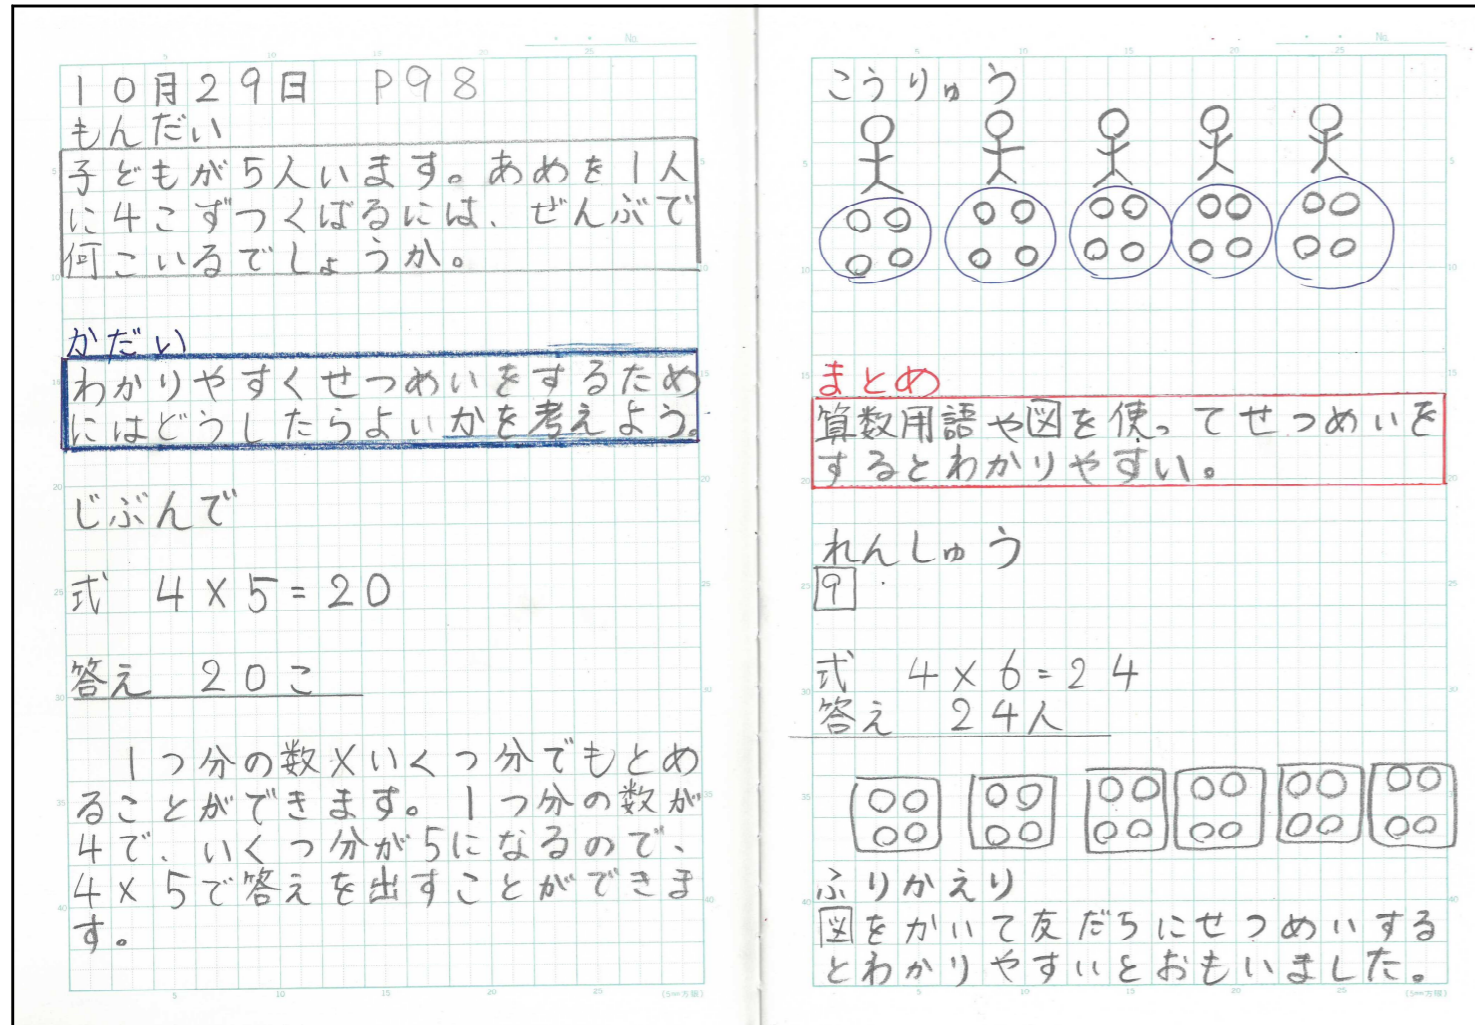 10月29日 P98
もんだい
子どもが5人います。あめを1人
に4こずつくばるには、ぜんぶで
何こいるでしょうか。
かだい
わかりやすくせつめいをするため
にはどうしたらよいかを考えよう。
じぶんで
式 4×5=20
答え 20こ
1つ分の数×いくつ分でもとめ
ることができます。1つ分の数が
4で、いくつ分が5になるので、
4×5で答えを出すことができま
す。
No.
こうりゅう
まとめ
算数用語や図を使ってせつめいを
するとわかりやすい。
れんしゅう
9
式 4×6=24
答え 24人
ふりかえり
図をかいて友だちにせつめいする
とわかりやすいとおもいました。
No.